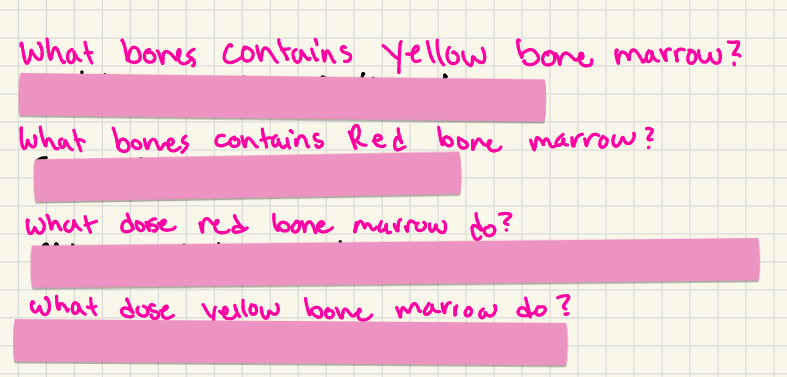 What bones contains Yellow bone marrow?
What bones contains Red bone marrow?
what dose red bone marrow do?
what dose yellow bone marrow do?